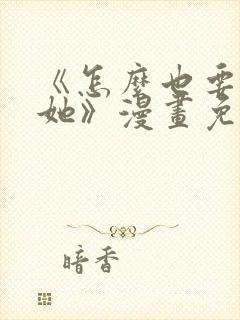 《怎麼也要
她》漫畫免
暗香